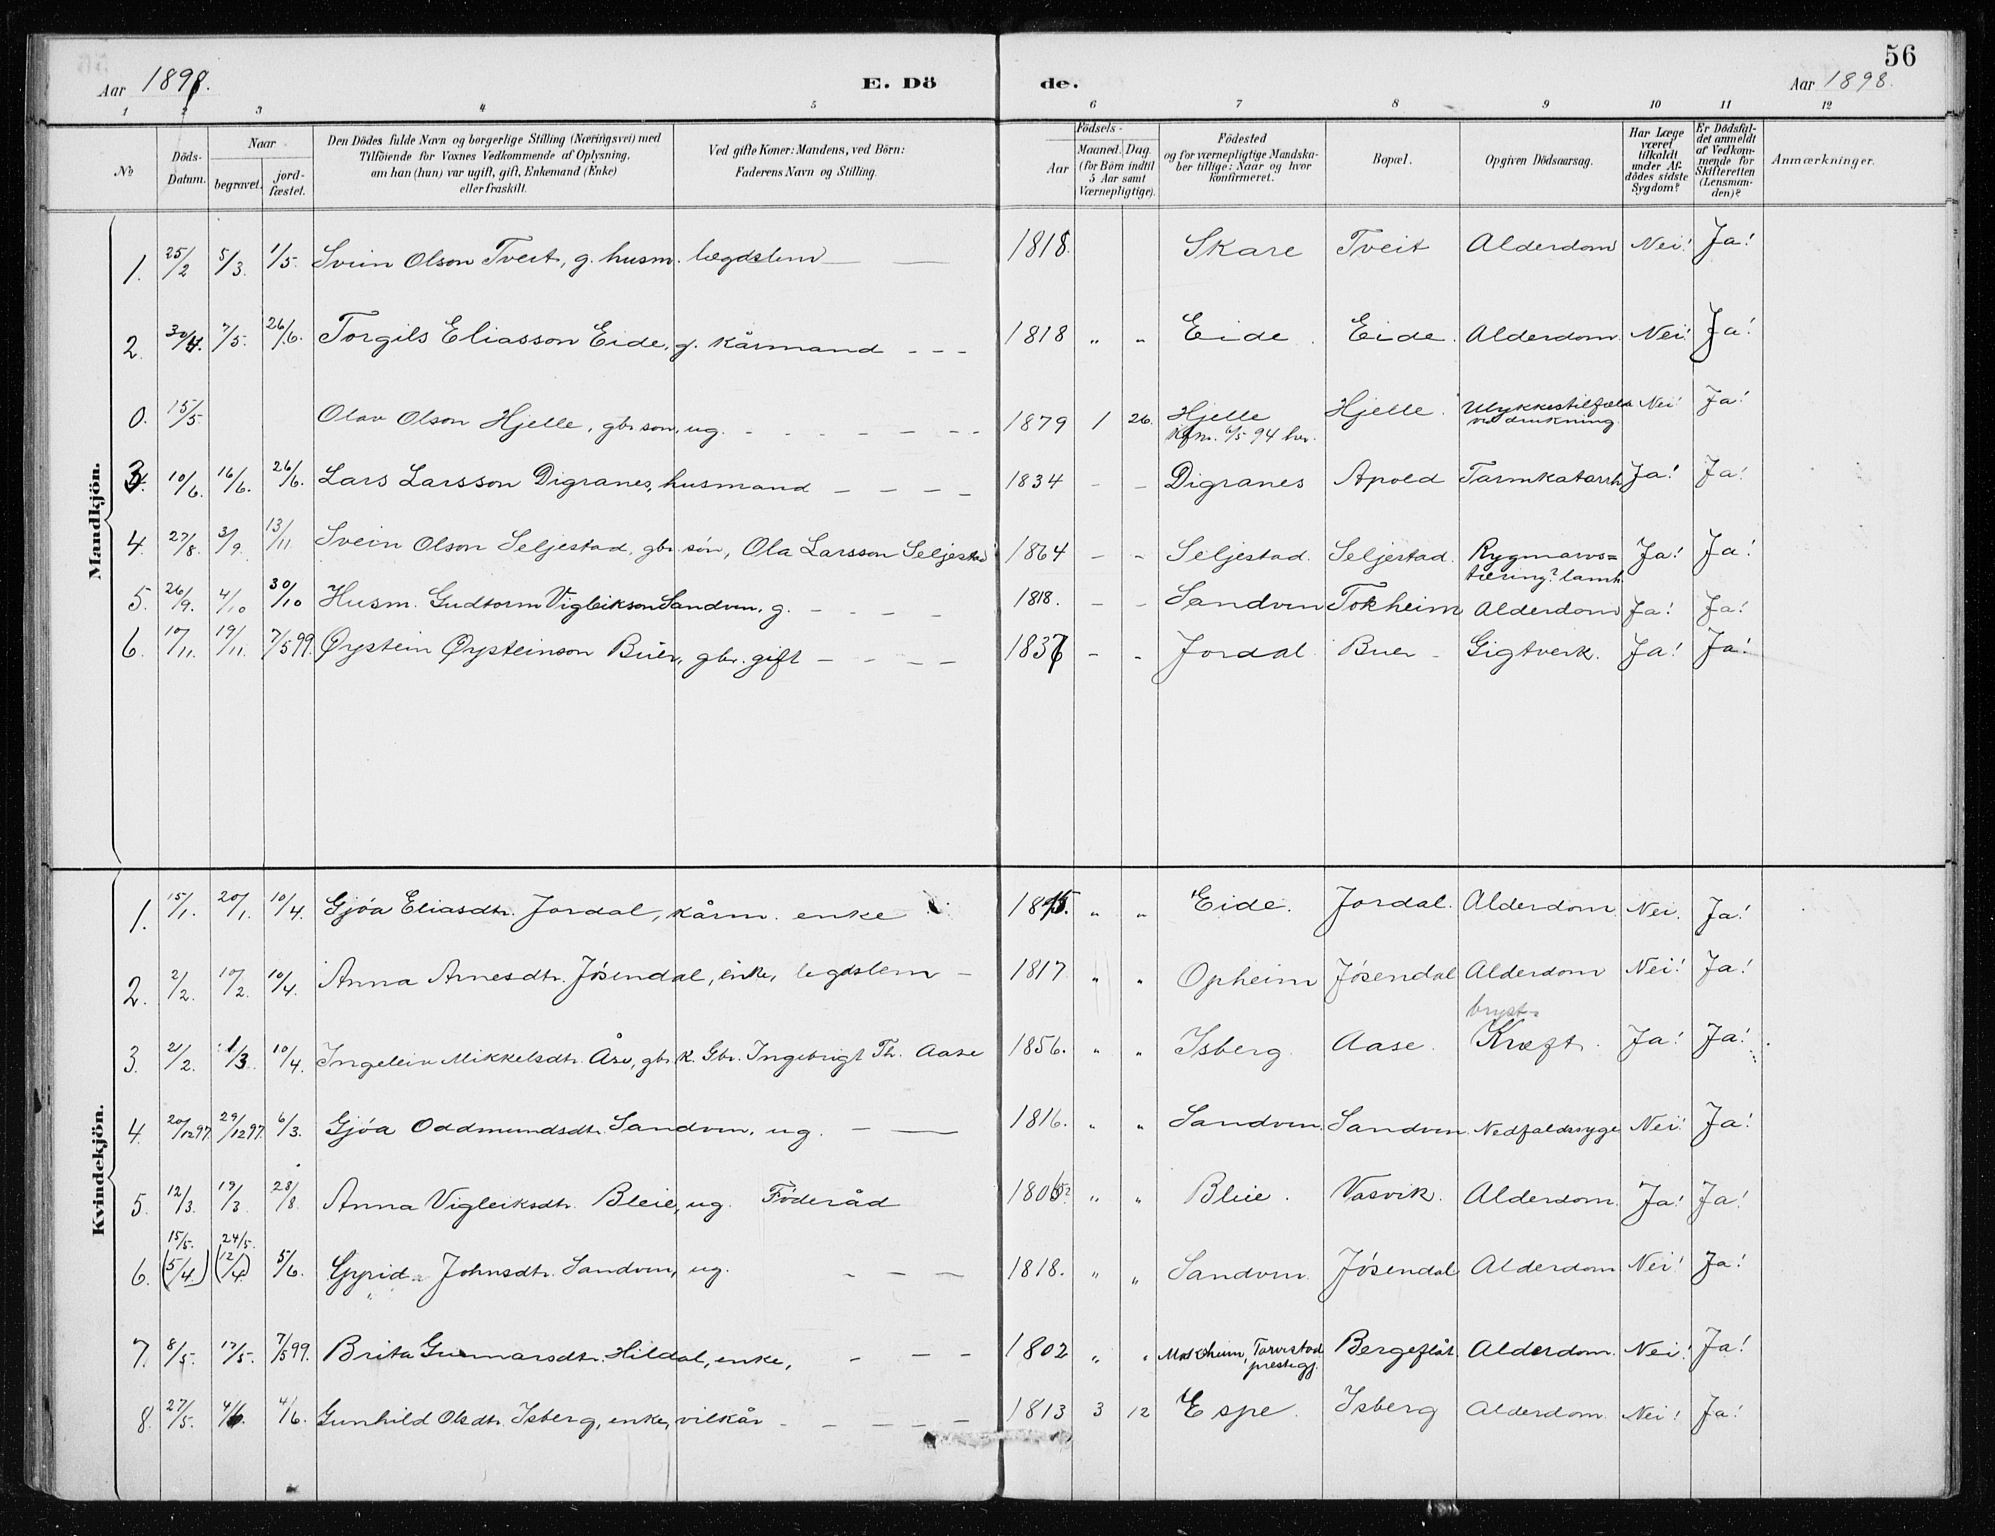 56
Aar 1898. E. Dö de. Aar 1898.
1 2 3 4 5 6 7 8 9 10 11 12
No Döds-Datum. Naar begravet. jordfæstet. Den Dödes fulde Navn og borgerlige Stilling (Næringsvei) med Tilföiende for Voxnes Vedkommende af Oplysning, om han (hun) var ugift, gift, Enkemand (Enke) eller fraskilt. Ved gifte Koner: Mandens, ved Börn: Faderens Navn og Stilling. Födsels- Aar Maaned. Dag. (for Börn indtil 5 Aar samt Værnepligtige). Födested og for værnepligtige Mandskaber tillige: Naar og hvor konfirmeret. Bopæl. Opgiven Dödsaarsag. Har Læge været tilkaldt under Afdödes sidste Sygdom? Er Dödsfaldet anmeldt af Vedkommende for Skifteretten (Lensmanden)? Anmærkninger.
Mandkjön.
1. 25/2 5/3. 1/5. Svein Olson Tveit, g. husm. lægdslem — — 1818. Skare Tveit Alderdom Nei! Ja!
2. 30/4. 7/5. 26/6. Torgils Eliasson Eide, g. kårmand - - - 1818 " " Eide. Eide. Alderdom. Nei! Ja!
0. 15/5. Olav Olson Hjelle, gbr son, ug. - - - - - - 1879 1 26. Hjelle Hjelle. Ulykkestilfælde Nei! Ja!
Kfm. 6/5 94 her. ved drukning
3. 10/6. 16/6. 26/6. Lars Larsson Digranes, husmand - - - - 1834 - - Digranes Apold Tarmkatarrh Ja! Ja!
4. 27/8. 3/9. 13/11 Svein Olson Seljestad, gbr. søn, Ola Larsson Seljestad 1864 - - Seljestad. Seljestad. Rygmarvs= Ja! Ja!
tæring? lamh.
5. 26/9. 4/10 30/10 Husm. Gudtorm Vigleikson Sandven, g. - - - - 1818. - - Sandven Tokheim Alderdom Ja! Ja!
6. 10/11. 19/11. 7/5 99. Øystein Øysteinson Buer, gbr. gift - - - - 1837 - - Jordal Buer Gigtverk. Ja! Ja!
Kvindekjön.
1. 15/1. 20/1. 10/4. Gjøa Eliasdtr. Jordal, kårm. enke 1815. " " Eide. Jordal. Alderdom Nei. Ja!
2. 2/2. 10/2. 10/4. Anna Arnesdtr. Jøsendal, enke, legdslem - 1817 " " Opheim Jøsendal Alderdom Nei! Ja!
bryst-
3. 21/2. 1/3. 10/4. Ingeleiv Mikkelsdtr. Åse, gbr. k. Gbr. Ingebrigt Th. Aase 1856. " " Isberg. Aase. Kræft. Ja! Ja!
4. 20/12 97. 29/12 97. 6/3. Gjøa Oddmundsdtr. Sandven, ug. - — 1816. " " Sandven. Sandven Nedfaldssyge Nei! Ja!
5. 12/3. 19/3 28/8. Anna Vigleiksdtr. Bleie, ug. Föderåd 1805 " " Bleie. Vasvik. Alderdom. Ja! Ja!
15/5. 24/5.
6. (5/4) (12/4) 5/6. Gyrid Johnsdtr. Sandven, ug. - - - 1818. " " Sandven. Jøsendal Alderdom Nei! Ja!
7. 8/5. 17/5. 7/5 99. Brita Gunnarsdtr. Hildal, enke, - - - 1802 " " Mokheim, Torvestad Bergeflåt. Alderdom. Nei! Ja!
prestegj.
8. 27/5. 4/6 4/6. Gunhild Olsdtr. Isberg, enke, vilkår - - - - - 1813 3 12 Espe. Isberg Alderdom. Nei! Ja!